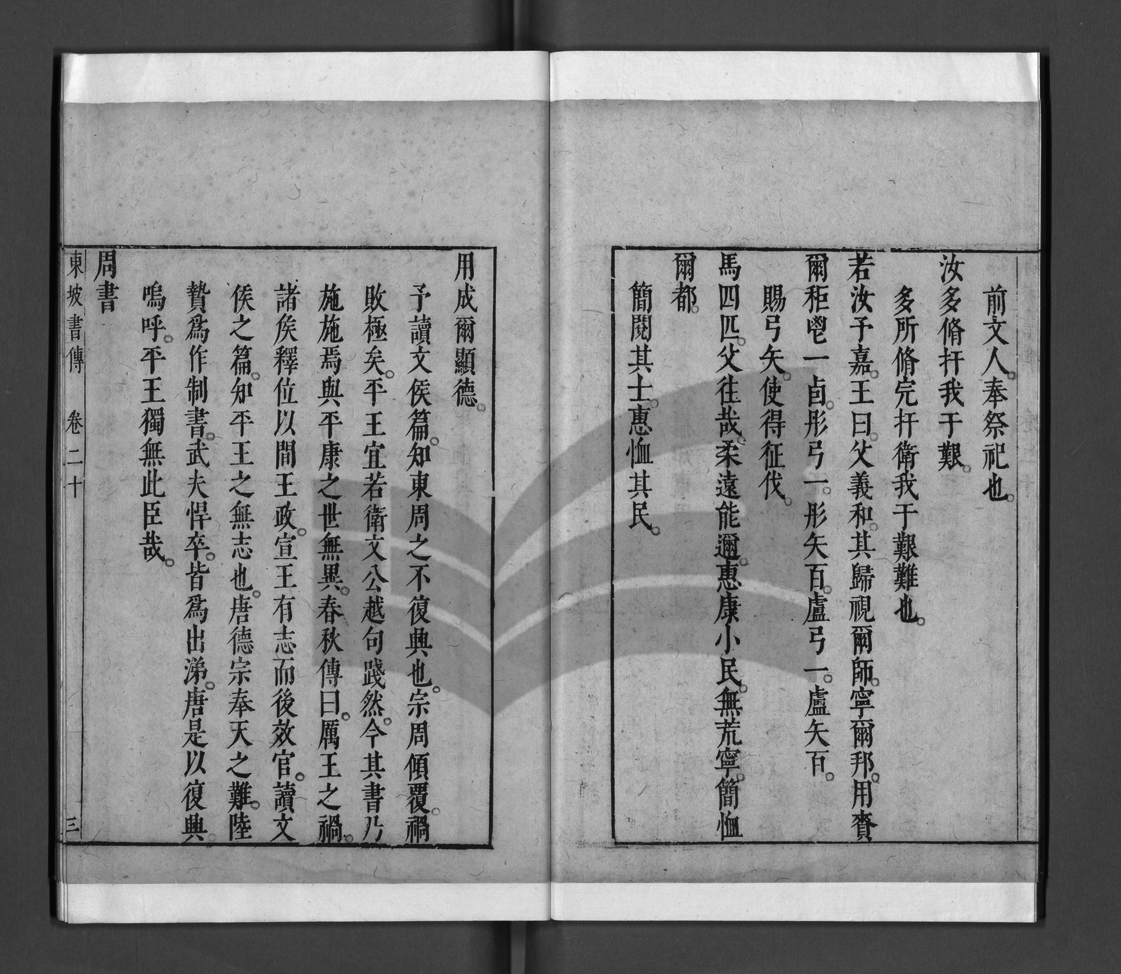 前文人。奉祭祀也。
汝多脩扞我于艱。
多所脩完扞衛我于艱難也。
若汝予嘉。王曰。父義和。其歸視爾師。寧爾邦。用賚
爾秬鬯一卣。彤弓一。彤矢百。盧弓一。盧矢百。
賜弓矢。使得征伐。
馬四匹。父往哉。柔遠能邇。惠康小民。無荒寧。簡恤
爾都。
簡閱其士。惠恤其民。
用成爾顯德。
予讀文侯篇。知東周之不復興也。宗周傾覆。禍
敗極矣。平王宜若衛文公越句踐然。今其書乃
施施焉與平康之世無異。春秋傳曰。厲王之禍。
諸侯釋位以間王政。宣王有志而後效官。讀文
侯之篇。知平王之無志也。唐德宗奉天之難。陸
贄爲作制書。武夫悍卒。皆爲出涕。唐是以復興。
嗚呼。平王獨無此臣哉。
周書
東坡書傳 卷二十 三